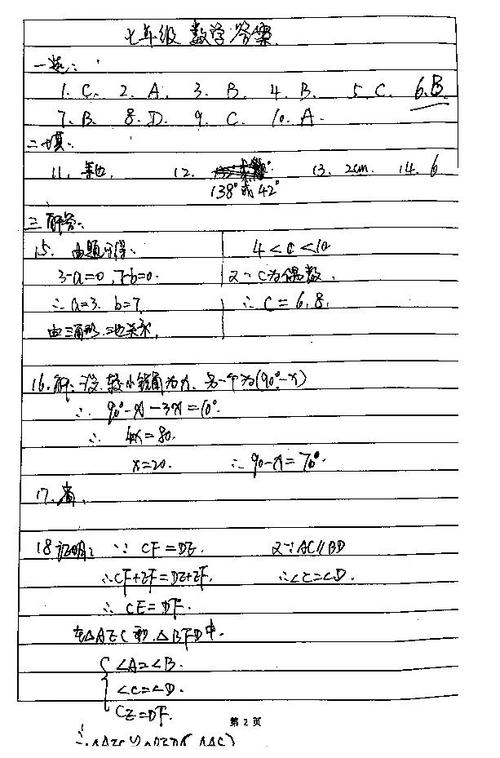 七年级 数学答案
一选:
1. C. 2. A. 3. B. 4. B. 5 C. 6.B
7. B. 8. D. 9. C. 10. A.
二填.
11. 等边. 12. 13. 2cm. 14. 6
138°或42°
三解答:
15. 由题可得:
3-a=0, 7-b=0.
∴ a=3. b=7
由三角形三边关系,
4<c<10
又∵C为偶数.
∴ C=6,8.
16.解:设较小锐角为x, 另一个为(90°-x)
∴ 90°-x-3x=10°
∴ 4x=80.
x=20. ∴ 90-x=70°.
17.略.
18证明: ∵ CF=DE. 又∵AC∥BD
∴CF+EF=DE+EF. ∴∠C=∠D.
∴ CE=DF.
在△AEC和△BFD中.
∠A=∠B.
∠C=∠D.
CE=DF.
第 2 页